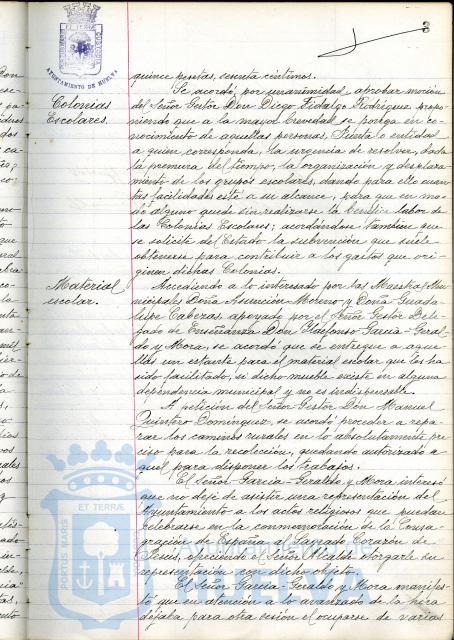 AYUNTAMIENTO DE HUELVA
Colonias
Escolares.
quince pesetas, sesenta céntimos.
Se acordó, por unanimidad, aprobar moción
del Señor Gestor Don Diego Fidalgo Rodríguez, propo-
niendo que a la mayor brevedad se ponga en co-
nocimiento de aquellas personas, Junta o entidad
a quien corresponda, la urgencia de resolver, dada
la premura del tiempo, la organización y desplaza-
miento de los grupos escolares, dando para ello cuan-
tas facilidades esté a su alcance, para que en mo-
do alguno quede sin realizarse la benéfica labor de
las Colonias Escolares; acordándose también que
se solicite del Estado la subvención que suele
obtenerse para contribuir a los gastos que ori-
ginen dichas Colonias.
Material
escolar.
Accediendo a lo interesado por las Maestras Mu-
nicipales Doña Asunción Moreno y Doña Guada-
lupe Cabezas, apoyado por el Señor Gestor Dele-
gado de Enseñanza Don Ildefonso García-Geral-
do y Mora, se acordó que se entregue a aque-
llas un estante para el material escolar que les ha
sido facilitado, si dicho mueble existe en alguna
dependencia municipal y no es indispensable.
A petición del Señor Gestor Don Manuel
Quintero Domínguez, se acordó proceder a repa-
rar los caminos rurales en lo absolutamente pre-
ciso para la recolección, quedando autorizado a-
quel para disponer los trabajos.
El Señor García-Geraldo y Mora interesó
que no deje de asistir una representación del
Ayuntamiento a los actos religiosos que puedan
celebrarse en la conmemoración de la Consa-
gración de España al Sagrado Corazón de
Jesús, ofreciendo el Señor Alcalde otorgarle su
representación con dicho objeto.
El Señor García-Geraldo y Mora manifes-
tó que en atención a lo avanzado de la hora
dejaba para otra sesión el ocuparse de varios
PORTUS MARIS ET TERRAE